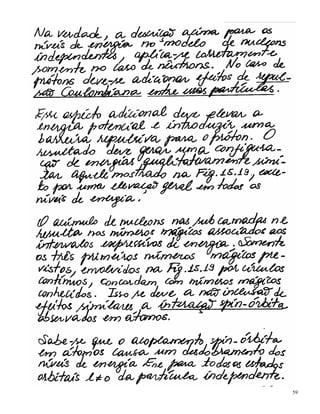 Na verdade, a descrição acima para os
níveis de energia no "modelo de nucleons
independentes, aplica-se corretamente
somente no caso de nêutrons. No caso de
prótons deve-se adicionar efeitos de repul-
são Coulombiana entre essas partículas.
Esse aspecto adicional deve elevar a
energia potencial e introduzir uma
barreira repulsiva para o próton. O
resultado deve gerar uma configura-
ção de energias qualitativamente simi-
lar àquele mostrado na Fig. 15.19, exce-
to por uma elevação geral em todos os
níveis de energia.
O acúmulo de nucleons nas subcamadas nl
resulta nos números mágicos associados aos
intervalos expressivos de energia. Somente
os três primeiros números mágicos pre-
vistos, envolvidos na Fig. 15.19 por círculos
contínuos, concordam com números mágicos
conhecidos. Isso se deve a não inclusão de
efeitos similares a interação spin-órbita
observados em átomos.
Sabe-se que o acoplamento spin-órbita
em átomos causa um desdobramento dos
níveis de energia Enl para todos os estados
orbitais l≠0 da partícula independente.
59